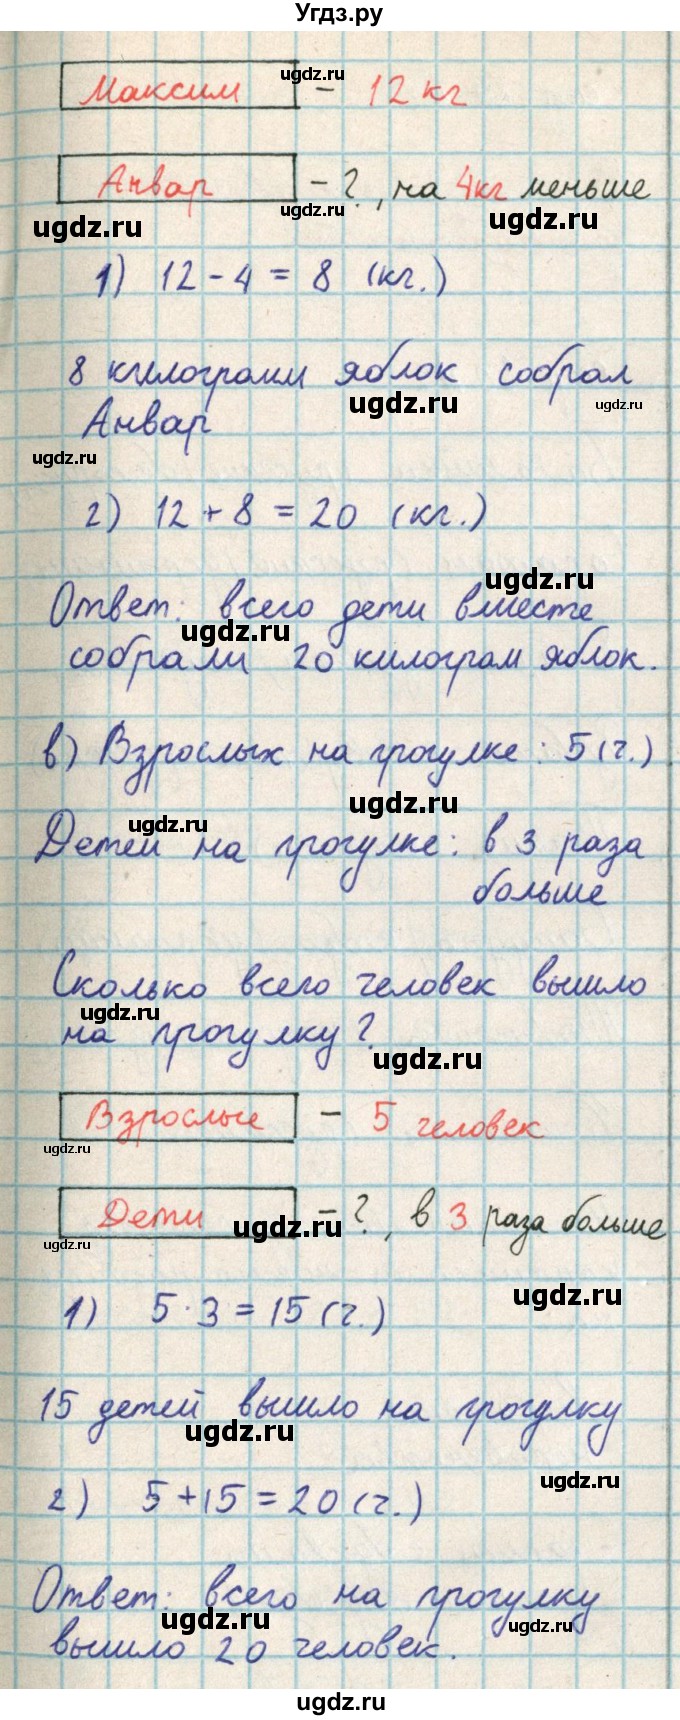 Угдз.ру
Максим - 12 кг
Анвар - ?, на 4кг меньше
1) 12 - 4 = 8 (кг.)
8 килограмм яблок собрал
Анвар
2) 12 + 8 = 20 (кг.)
Ответ: всего дети вместе
собрали 20 килограм яблок.
в) Взрослых на прогулке: 5 (ч.)
Детей на прогулке: в 3 раза
больше
Сколько всего человек вышло
на прогулку?
Взрослые - 5 человек
Дети - ?, в 3 раза больше
1) 5 · 3 = 15 (ч.)
15 детей вышло на прогулку
2) 5 + 15 = 20 (ч.)
Ответ: всего на прогулку
вышло 20 человек.
ugdz.ru